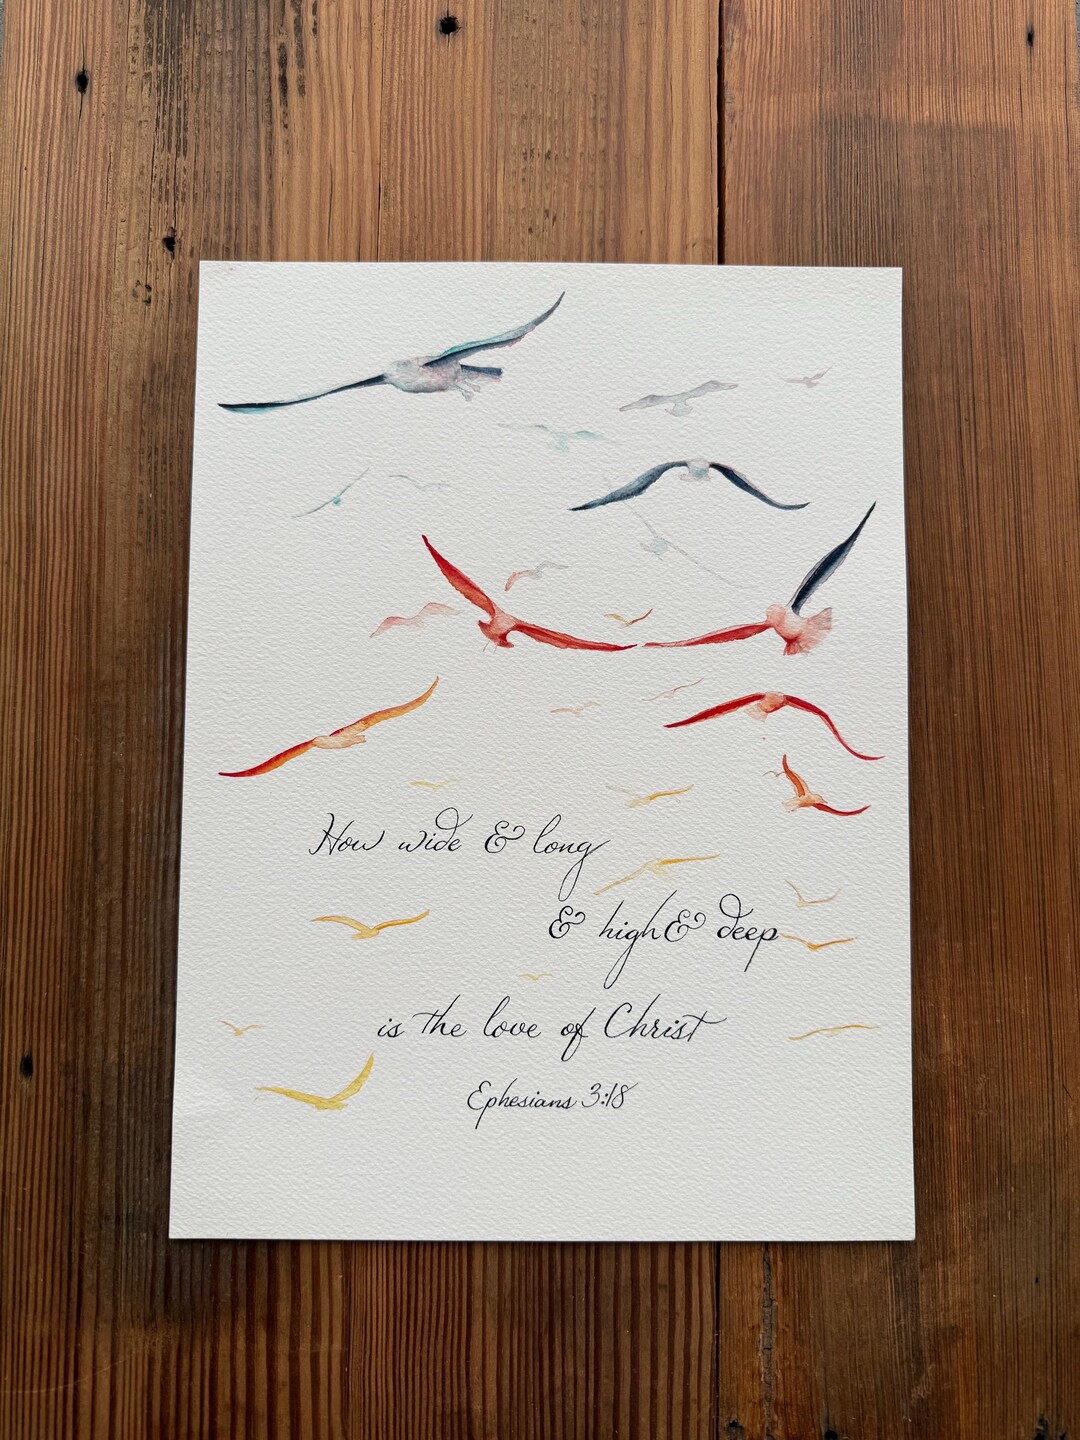 How wide & long
& high & deep
is the love of Christ
Ephesians 3:18